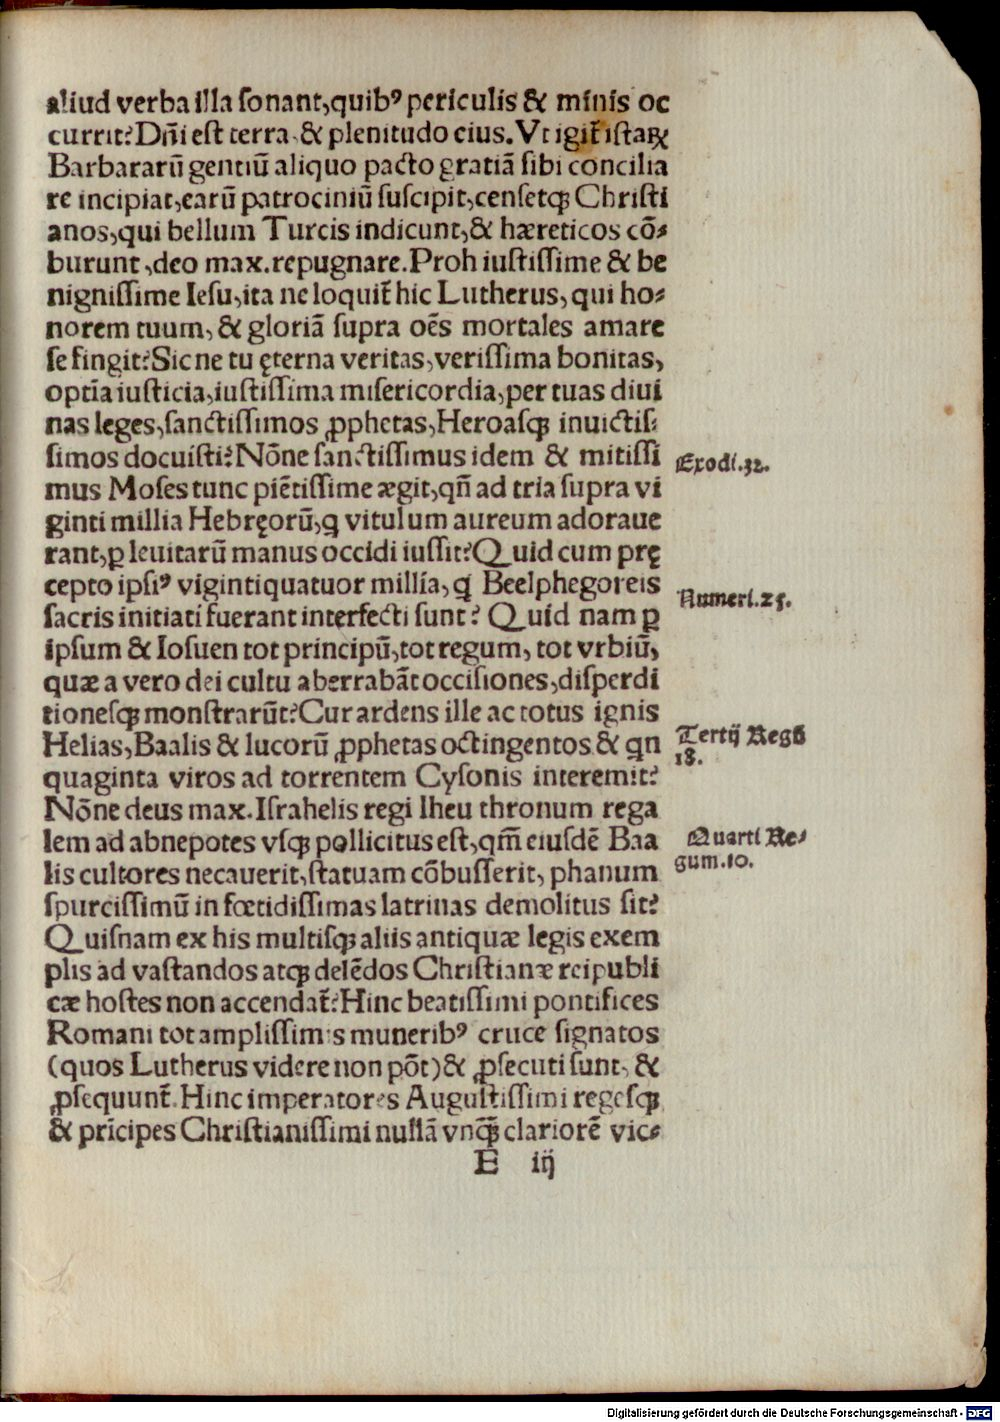 aliud verba illa ſonant, quibꝰ periculis & minis oc
currit? Dñi eſt terra & plenitudo eius. Vt igit̃ iſtaꝝ
Barbararũ gentiũ aliquo pacto gratiã ſibi concilia
re incipiat, earũ patrociniũ ſuſcipit, cenſetq̃ Chriſti
anos, qui bellum Turcis indicunt, & hæreticos cõ-
burunt, deo max. repugnare. Proh iuſtiſſime & be
nigniſſime Ieſu, ita ne loquit̃ hic Lutherus, qui ho-
norem tuum, & gloriã ſupra oẽs mortales amare
ſe fingit? Sic ne tu ęterna veritas, veriſſima bonitas,
optĩa iuſticia, iuſtiſſima miſericordia, per tuas diui
nas leges, ſanctiſſimos ꝓphetas, Heroaſq̃ inuictiſ-
ſimos docuiſti? Nõne ſanctiſſimus idem & mitiſſi
mus Moſes tunc piẽtiſſime ægit, qñ ad tria ſupra vi
ginti millia Hebręorũ, q̃ vitulum aureum adoraue
rant, ꝑ leuitarũ manus occidi iuſſit? Quid cum prę
cepto ipſiꝰ vigintiquatuor millia, q̃ Beelphegoreis
ſacris initiati fuerant interfecti ſunt? Quid nam ꝑ
ipſum & Ioſuen tot principũ, tot regum, tot vrbiũ,
quæ a vero dei cultu aberrabãt occiſiones, diſperdi
tioneſq̃ monſtrarũt? Cur ardens ille ac totus ignis
Helias, Baalis & lucorũ ꝓphetas octingentos & qn
quaginta viros ad torrentem Cyſonis interemit?
Nõne deus max. Iſrahelis regi Iheu thronum rega
lem ad abnepotes vſq̃ pollicitus eſt, qm̃ eiuſdẽ Baa
lis cultores necauerit, ſtatuam cõbuſſerit, phanum
ſpurciſſimũ in fœtidiſſimas latrinas demolitus ſit?
Quiſnam ex his multiſq̃ aliis antiquæ legis exem
plis ad vaſtandos atq̃ delẽdos Chriſtianæ reipubli
cæ hoſtes non accendat̃? Hinc beatiſſimi pontifices
Romani tot ampliſſimis muneribꝰ cruce ſignatos
(quos Lutherus videre non põt) & ꝓſecuti ſunt, &
ꝓſequunt̃. Hinc imperatores Auguſtiſſimi regeſq̃
& prĩcipes Chriſtianiſſimi nullã vnq̃̃ clariorẽ vic-
E iij
Exodi. 32.
Numeri. 25.
Tertij Regũ
18.
Quarti Re-
gum. 10.
Digitalisierung gefördert durch die Deutsche Forschungsgemeinschaft - DFG